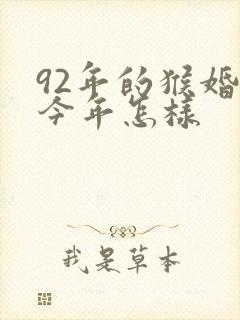 92年的猴婚
今年怎样
我是草本